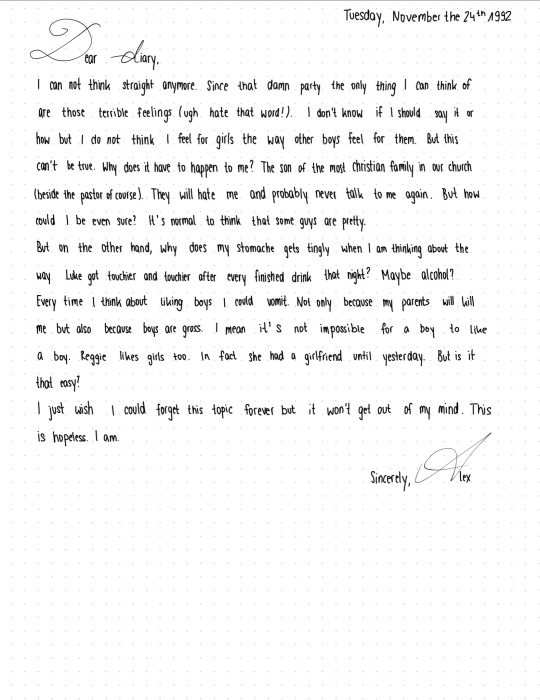 Tuesday, November the 24th 1992
Dear diary,
I can not think straight anymore. Since that damn party the only thing I can think of
are those terrible feelings (ugh hate that word!). I don't know if I should say it or
how but I do not think I feel for girls the way other boys feel for them. But this
can't be true. Why does it have to happen to me? The son of the most christian family in our church
(beside the pastor of course). They will hate me and probably never talk to me again. But how
could I be even sure? It's normal to think that some guys are pretty.
But on the other hand, why does my stomache gets tingly when I am thinking about the
way Luke got touchier and touchier after every finished drink that night? Maybe alcohol?
Every time I think about liking boys I could vomit. Not only because my parents will kill
me but also because boys are gross. I mean it's not impossible for a boy to like
a boy. Reggie likes girls too. In fact she had a girlfriend until yesterday. But is it
that easy?
I just wish I could forget this topic forever but it won't get out of my mind. This
is hopeless. I am.
Sincerely, Alex